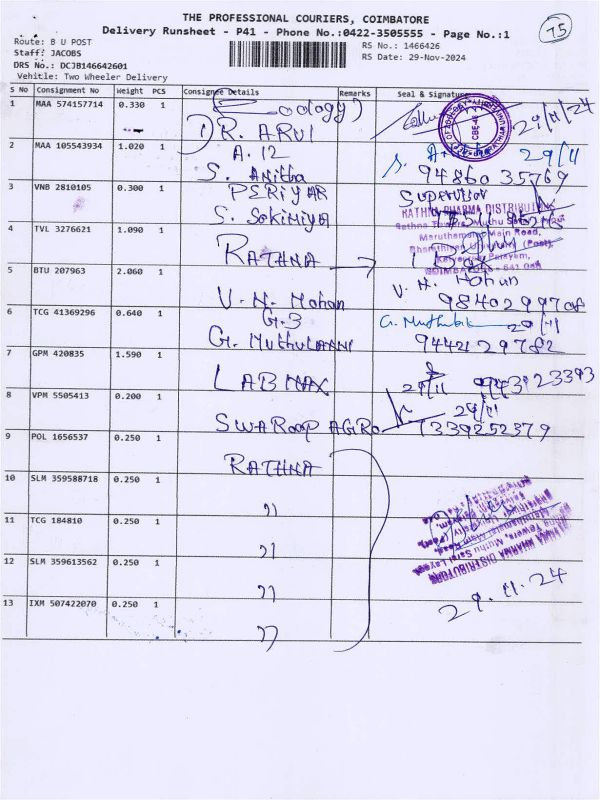 THE PROFESSIONAL COURIERS, COIMBATORE
Delivery Runsheet - P41 - Phone No.:0422-3505555 - Page No.:1
75
Route: B U POST
RS No.: 1466426
Staff: JACOBS
RS Date: 29-Nov-2024
DRS No.: DCJB146642601
Vehitle: Two Wheeler Delivery
S No Consignment No Weight PCS Consignee Details Remarks Seal & Signature
1 MAA 574157714 0.330 1
Zoology)
1) R. ARUL
29/11/24
2 MAA 105543934 1.020 1
A. 12
S. Anitha
29/11
94860 35769
3 VNB 2810105 0.300 1
PERIYAR
S. Sokimiya
Supervisor
RATHNA PHARMA DISTRIBUTORS
4 TVL 3276621 1.090 1
RATHNA
Rathna Towers, Muthu
Maruthamalai Main Road,
COIMBATORE - 641
5 BTU 207963 2.060 1
V. N. Mohan
V. N. Mohan
6 TCG 41369296 0.640 1
G.3
29/11
7 GPM 420835 1.590 1
LABMAX
29/11
8 VPM 5505413 0.200 1
SWAROOP AGRO
29/11
7339252379
9 POL 1656537 0.250 1
RATHNA
10 SLM 359588718 0.250 1
"
11 TCG 184810 0.250 1
"
RATHNA PHARMA DISTRIBUTORS
12 SLM 359613562 0.250 1
"
29.11.24
13 IXM 507422070 0.250 1
"